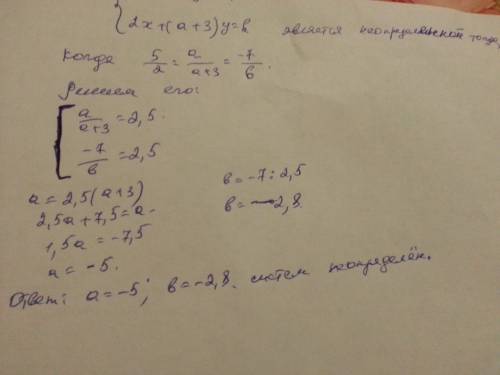 { 2x+(a+3)y=b является неопределённой тогда,
когда 5/2 = a/a+3 = -7/b.
Решаем его:
[ a/a+3 = 2,5.
-7/b = 2,5
a = 2,5(a+3)
b = -7 : 2,5
2,5a+7,5=a
b = -2,8.
1,5a = -7,5
a = -5.
Ответ: a=-5; b=-2,8. систем неопределён.